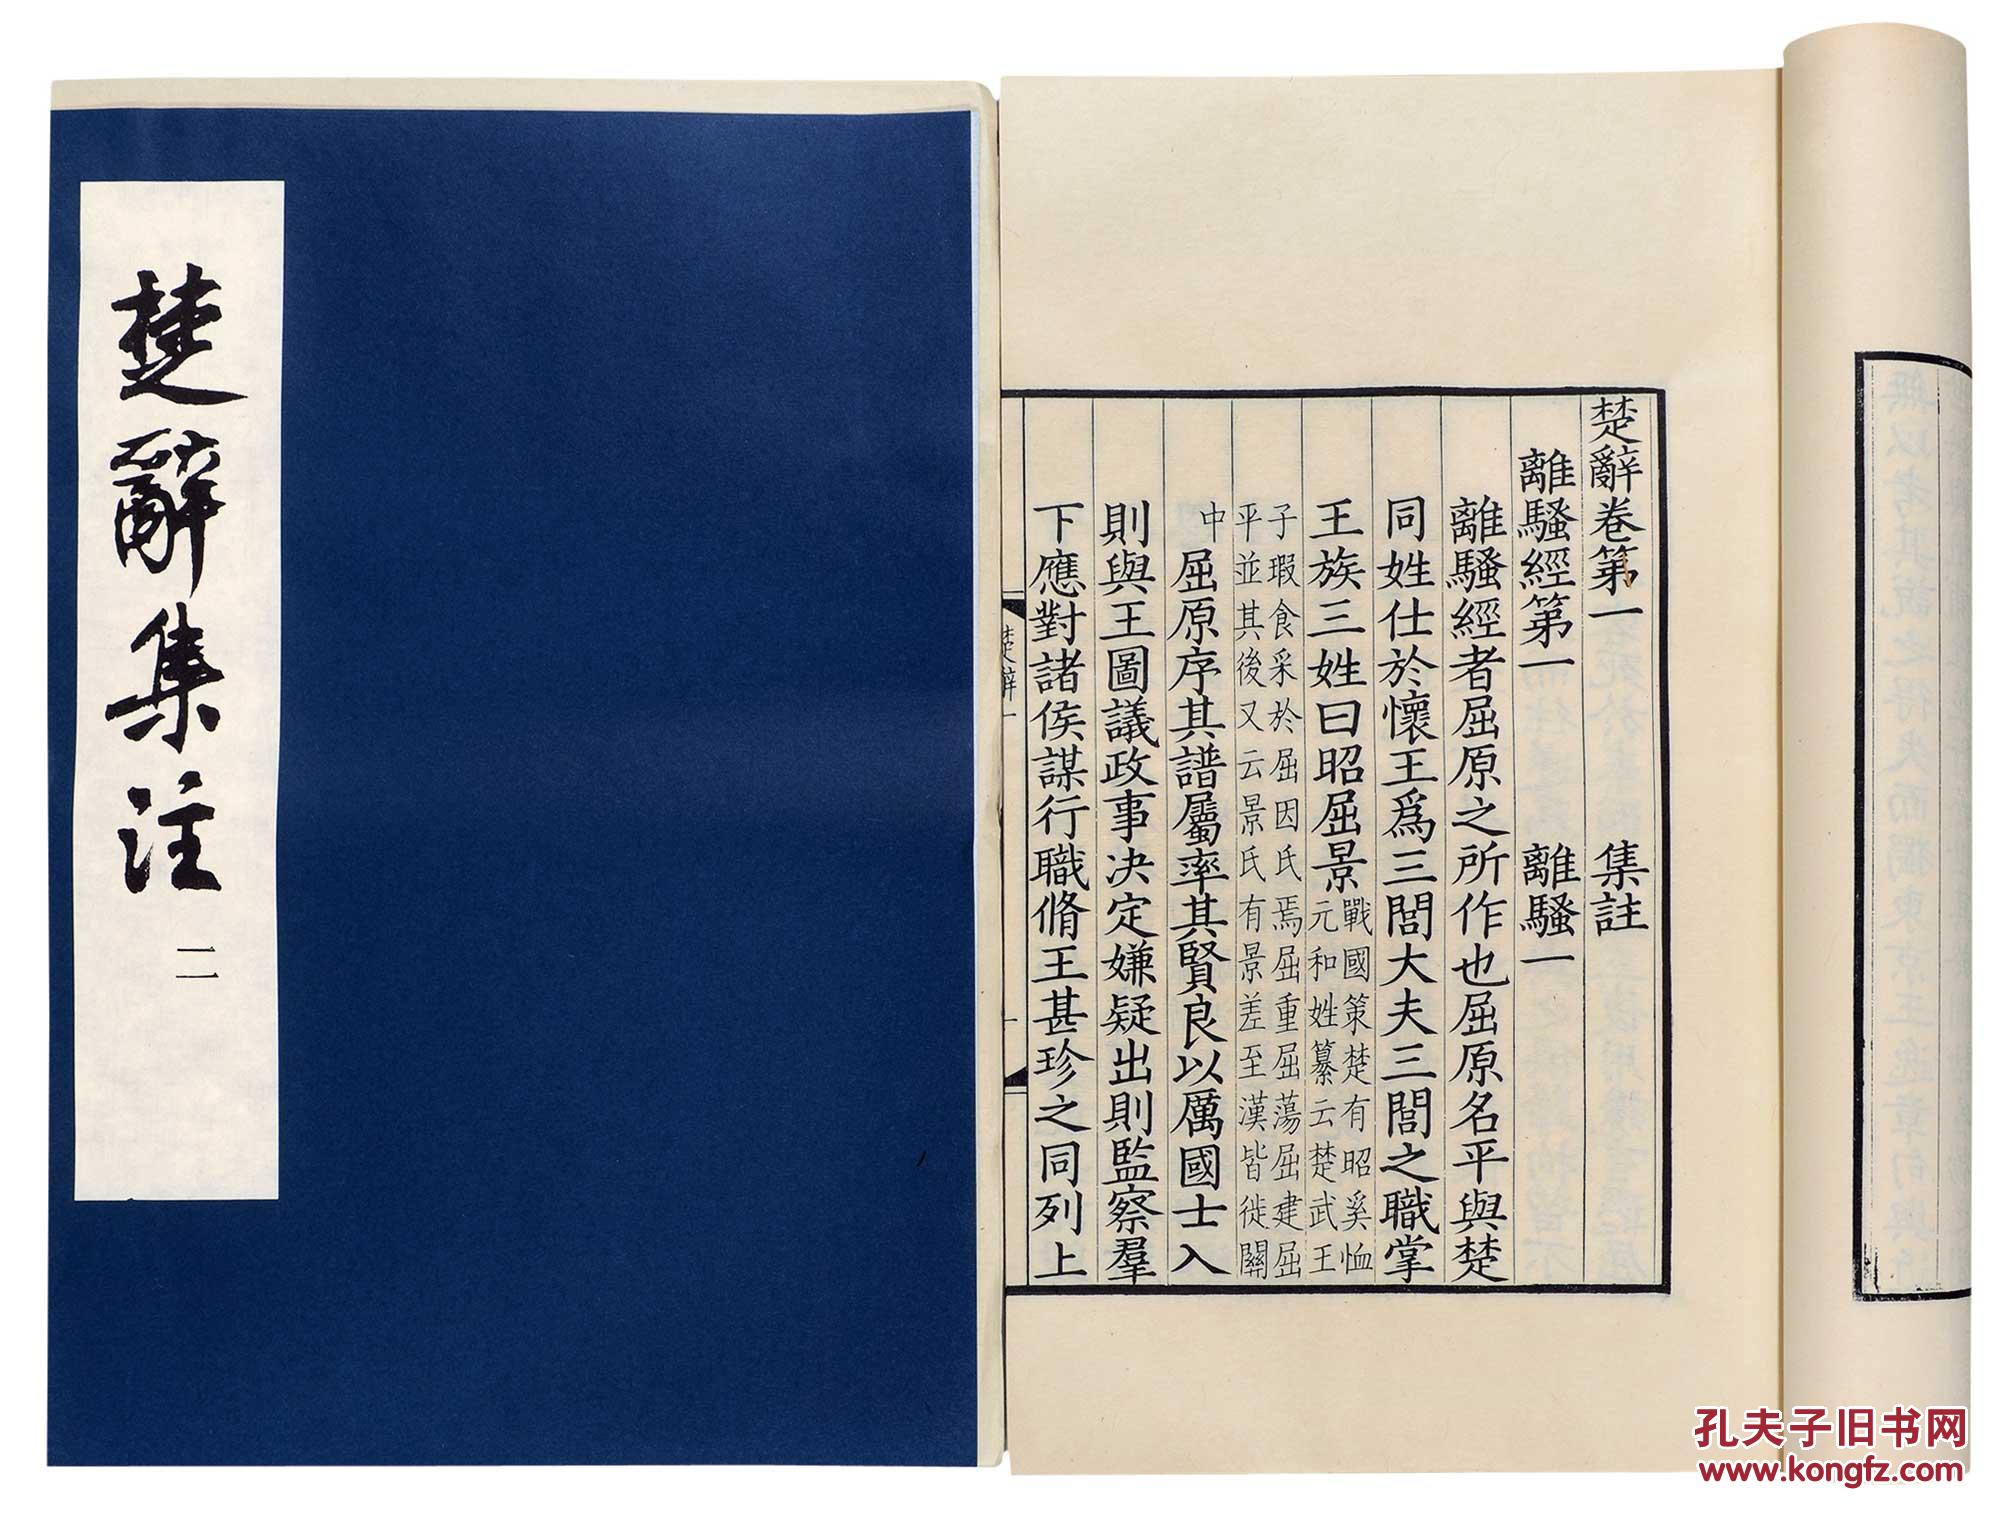 楚辭集注
二
無以考其說之得失而獨東京王逸章句與近
楚辭卷第一 集註
離騷經第一 離騷一
離騷經者屈原之所作也屈原名平與楚
同姓仕於懷王爲三閭大夫三閭之職掌
王族三姓曰昭屈景
戰國策楚有昭奚恤
元和姓纂云楚武王
子瑕食采於屈因氏焉屈重屈蕩屈建屈
平並其後又云景氏有景差至漢皆徙關
中
屈原序其譜屬率其賢良以厲國士入
則與王圖議政事决定嫌疑出則監察羣
下應對諸侯謀行職脩王甚珍之同列上
楚辭一
一
孔夫子旧书网
www.kongfz.com